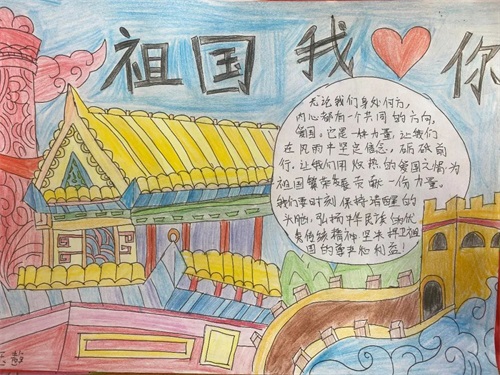 祖国我❤你
无论我们身处何方,
内心都有一个共同的方向,
爱国。它是一种力量,让我们
在风雨中坚定信念,砥砺前
行,让我们用炽热的爱国之情为
祖国繁荣 贡献一份力量。
我们要时刻保持清醒的
头脑,弘扬中华民族的优
秀传统精神,坚决捍卫祖
国的尊严和利益!